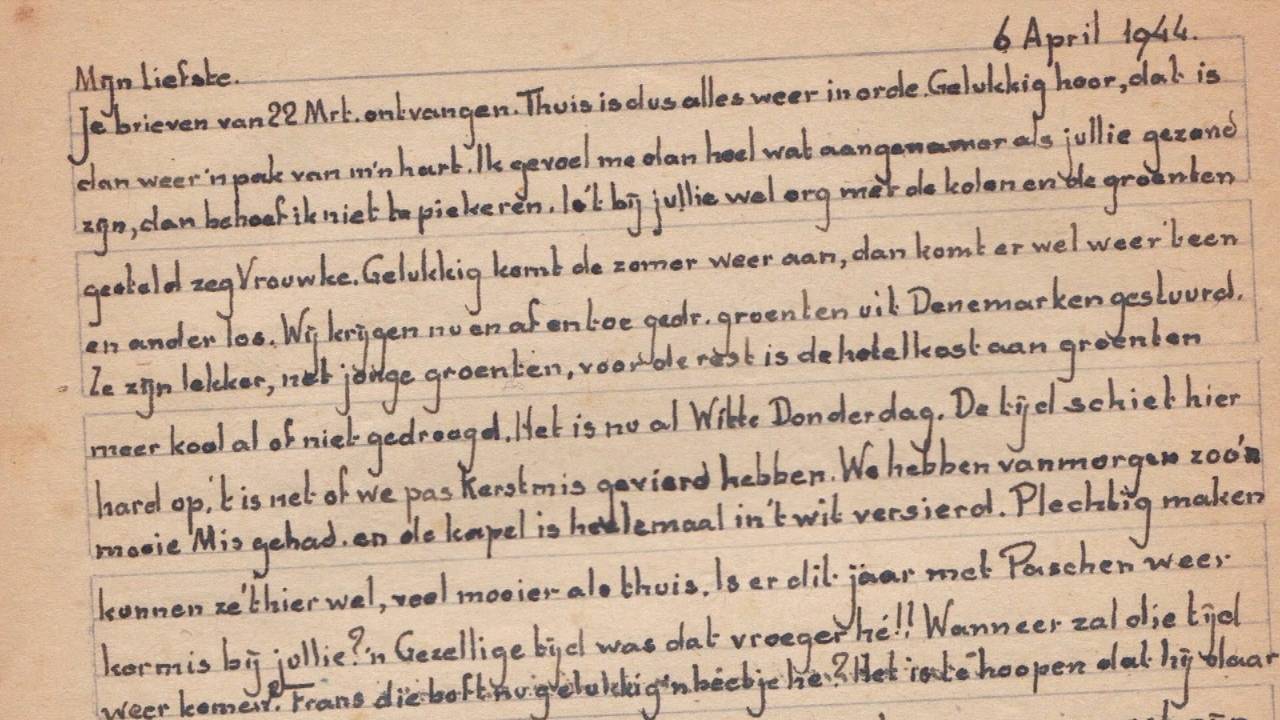 6 April 1944.
Mijn liefste.
Je brieven van 22 Mrt. ontvangen. Thuis is dus alles weer in orde. Gelukkig hoor, dat is
dan weer 'n pak van m'n hart. Ik gevoel me dan heel wat aangenamer als jullie gezond
zijn, dan behoef ik niet te piekeren. Is 't bij jullie wel erg met de kolen en de groenten
gesteld zeg Vrouwke. Gelukkig komt de zomer weer aan, dan komt er wel weer 't een
en ander los. Wij krijgen nu en af en toe gedr. groenten uit Denemarken gestuurd.
Ze zijn lekker, net jonge groenten, voor de rest is de hotelkost aan groenten
meer kool al of niet gedroogd. Het is nu al Witte Donderdag. De tijd schiet hier
hard op, 't is net of we pas Kerstmis gevierd hebben. We hebben vanmorgen zoo'n
mooie Mis gehad. en de kapel is heelemaal in 't wit versierd. Plechtig maken
kunnen ze 't hier wel, veel mooier als thuis. Is er dit jaar met Paschen weer
kermis bij jullie? 'n Gezellige tijd was dat vroeger hé!! Wanneer zal die tijd
weer komen? Frans die boft nu gelukkig 'n beetje he? Het is te hoopen dat hij daar